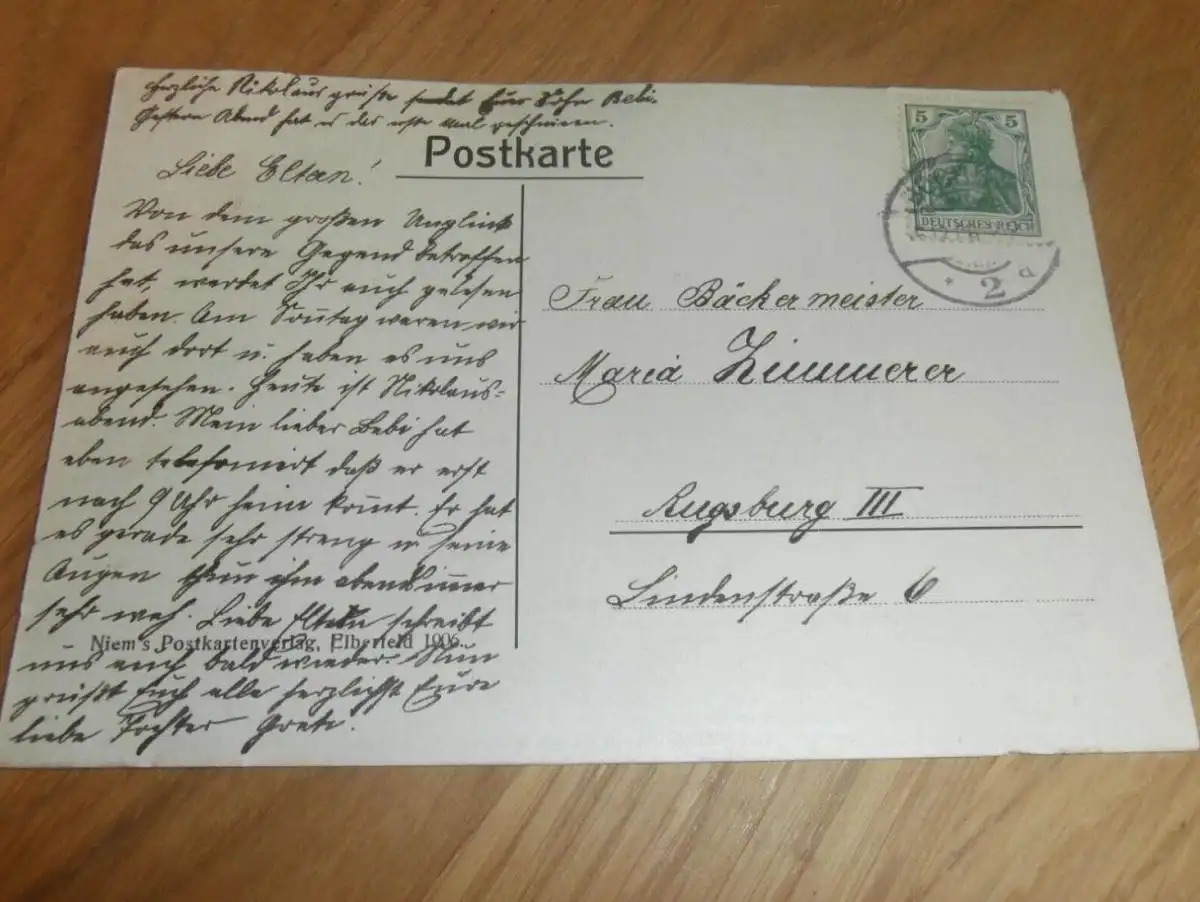 Herzliche Nikolausgrüße sendet Euer Sohn Bebi.
Gestern Abend hat es das erste mal geschnieen.
Postkarte
Liebe Eltern!
Von dem großen Unglück
das unsere Gegend betroffen
hat, werdet Ihr auch gelesen
haben. Am Sonntag waren wir
auch dort u. haben es uns
angesehen. Heute ist Nikolaus=
abend. Mein lieber Bebi hat
eben telefoniert daß er erst
nach 9 Uhr heim kommt. Er hat
es gerade sehr streng u seine
Augen thun ihm abends immer
sehr weh. Liebe Eltern schreibt
uns auch bald wieder. Nun
grüßt Euch alle herzlichst Eure
liebe Tochter Grete.
Niem's Postkartenverlag, Elberfeld 1906.
5 5
DEUTSCHES REICH
* 2 a
Frau Bäckermeister
Maria Zimmerer
Augsburg III
Lindenstraße 6